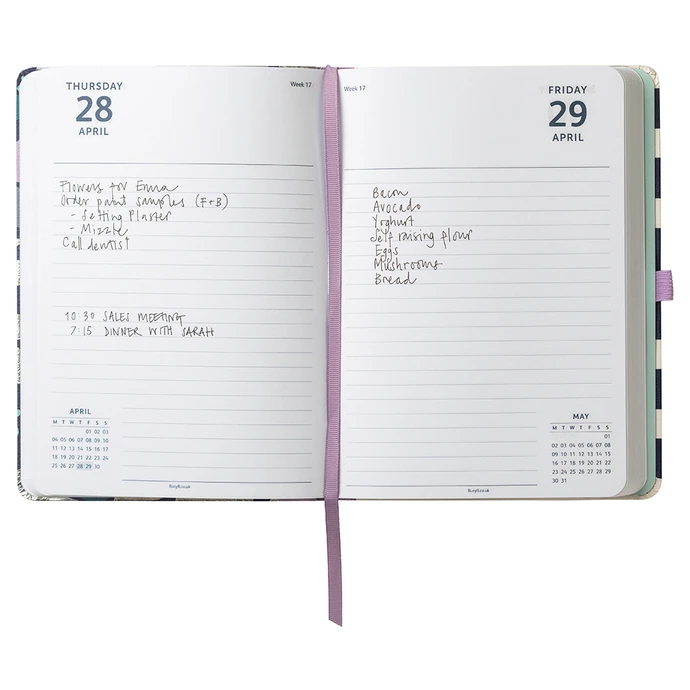 THURSDAY
28
APRIL
Week 17
Flowers for Emma
Order paint samples (F+B)
- Setting Plaster
- Mizzle
Call dentist
10:30 SALES MEETING
7:15 DINNER WITH SARAH
APRIL
M T W T F S S
01 02 03
04 05 06 07 08 09 10
11 12 13 14 15 16 17
18 19 20 21 22 23 24
25 26 27 28 29 30
BusyB.co.uk
Week 17
FRIDAY
29
APRIL
Bacon
Avocado
Yoghurt
Self raising flour
Eggs
Mushrooms
Bread
MAY
M T W T F S S
01
02 03 04 05 06 07 08
09 10 11 12 13 14 15
16 17 18 19 20 21 22
23 24 25 26 27 28 29
30 31
BusyB.co.uk